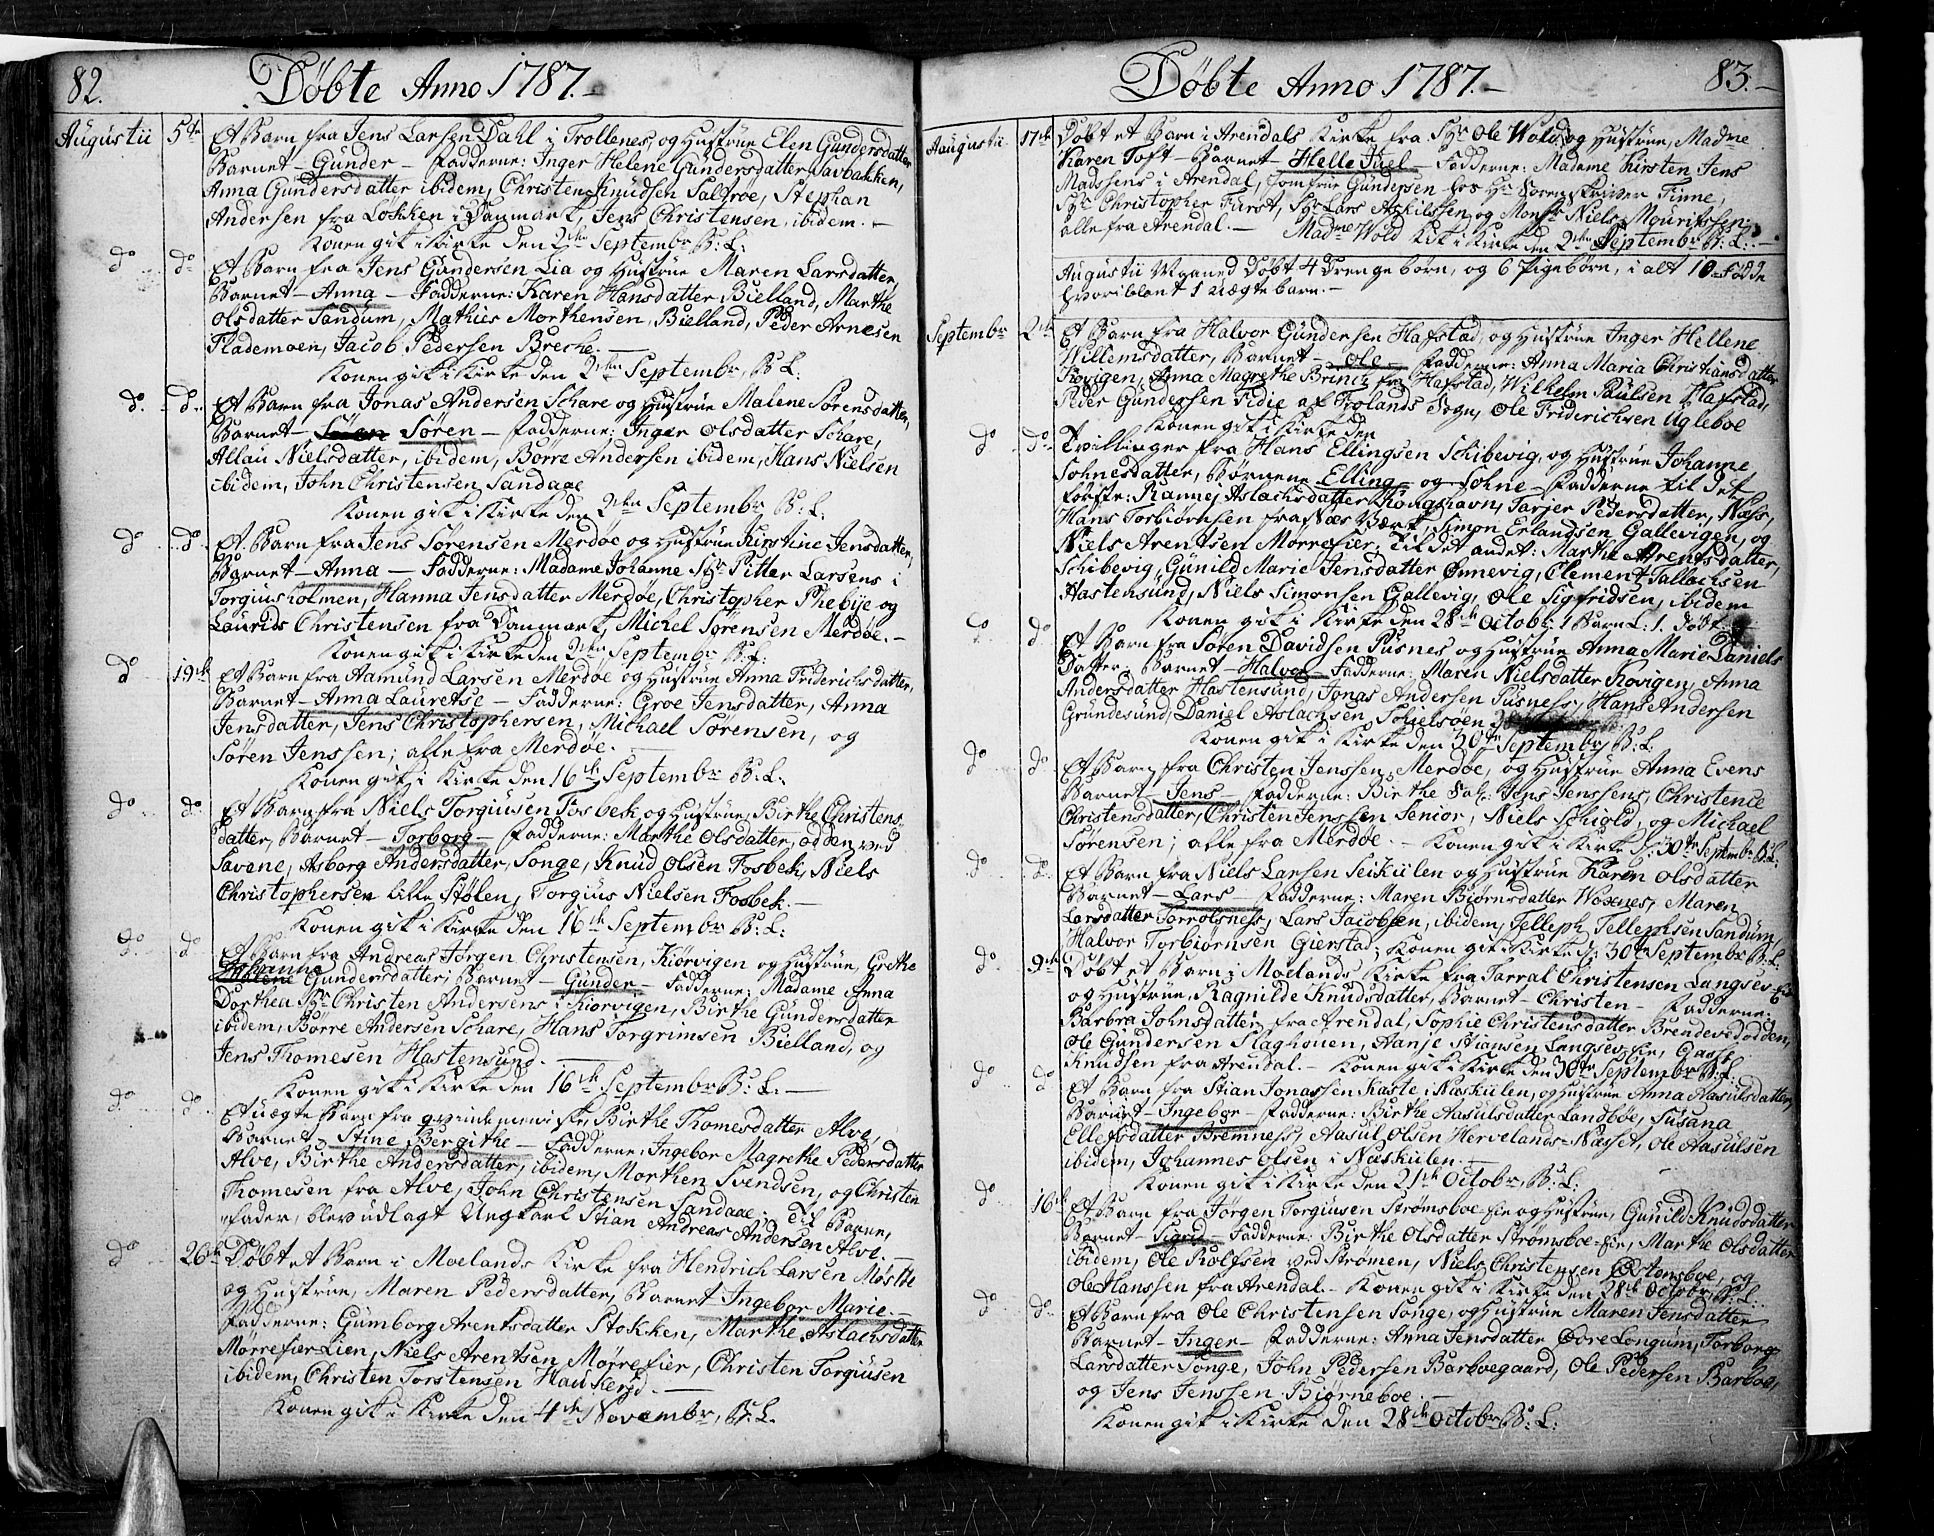 82.
Döbte Anno 1787.
Augustii 5te Et Barn fra Jens Larsen Dahl i Trollenes, og Hustrue Elen Gundersdatter
Barnet - Gunder - Fadderne: Inger Helene Gundersdatter Savbakken,
Anna Gundersdatter ibidem, Christen Knudsen Saltröe, Stephan
Andersen fra Lokken i Danmark, Jens Christensen, ibidem. -
Konen gik i Kirke den 2den Septembr. B: L:
do do Et Barn fra Jens Gundersen Lia og Hustrue Maren Larsdatter,
Barnet - Anna - Fadderne: Karen Hansdatter Bielland, Marthe
Olsdatter Sandum, Mathies Morthensen, Bielland, Peder Arnesen
Flademoen, Jacob Pedersen Breche. -
Konen gik i Kirke den 2den Septembr. B: L:
do. do. Et Barn fra Jonas Andersen Schare og Hustrue Malene Sørensdatter,
Barnet - Søren - Fadderne: Inger Olsdatter Schare,
Allau Nielsdatter, ibidem, Børre Andersen ibidem, Hans Nielsen
ibidem, John Christensen Sandaae
Konen gik i Kirke den 2den Septembr. B: L:
do do. Et Barn fra Jens Sørensen Merdøe og Hustrue Kirstine Jensdatter,
Barnet - Anna - Fadderne: Madame Johanne Hr. Pitter Larsens i
Torgiusholmen, Hanna Jensdatter Merdøe, Christopher Thebije og
Laurids Christensen fra Danmark, Michel Sørensen Merdøe. -
Konen gik i Kirke den 2den Septembr. B: L:
do 19de Et Barn fra Aamund Larsen Merdøe og Hustrue Anna Friderichsdatter,
Barnet - Anna Lauretse - Fadderne: Groe Jensdatter, Anna
Jensdatter, Jens Christophersen, Michael Sørensen, og
Søren Jenssen; alle fra Merdøe. -
Konen gik i Kirke den 16de Septembr B: L:
do do. Et Barn fra Niels Torgiusen Fosbek, og Hustrue, Birthe Christens-
datter, Barnet - Torborg - Fadderne: Marthe Olsdatter, Odden ved
Savene, Asborg Andersdatter, Songe, Knud Olsen Fosbek, Niels
Christophersen Lille Stølen, Torgius Nielsen Fosbek. -
Konen gik i Kirke den 16de Septembr B: L:
do. do. Et Barn fra Andreas Jørgen Christensen, Kiørvigen og Hustrue, Grethe
Johanne Gundersdatter, Barnet - Gunder - Fadderne: Madame Anna
Dorthea Hr. Christen Andersens i Kiorvigen, Birthe Gundersdatter
ibidem, Børre Andersen Schare, Hans Torgrimsen Bielland, og
Jens Thomesen Hastensund. -
Konen gik i Kirke den 16de Septembr B: L: -
do. do. Et uægte Barn fra qvindemenniske, Birthe Thomesdatter Alve,
Barnet Stine Bergithe - Fadderne, Ingebor Magrethe Pedersdatter
Alve, Birthe Andersdatter, ibidem, Morthen Svendsen, og Christen
Thomesen fra Alve, John Christensen Sandaae; Til Barne-
fader, blev udlagt Ungkarl Stian Andreas Andersen Alve. -
do 26de Døbt et Barn i Moelands Kirke fra Hendrich Larsen Møglte
og Hustrue, Maren Pedersdatter, Barnet - Ingebor Marie. -
Fadderne: Gumborg Arentsdatter Stokken, Marthe Aslachsdatter
Mørrefier Lien, Niels Arentsen Mørrefier, Christen Torgiusen
ibidem, Christen Torstensen Haukerød. -
Konen gik i Kirke den 4de Novembr, B: L.
Döbte Anno 1787.- 83.-
Aaugustii 17de Døbt et Barn i Arendals Kirke fra Hr. Ole Wold, og Hustrue, Madme
Karen Toft - Barnet - Helle Juel - Fadderne: Madame Kirsten Jens
Madssens i Arendal, Jomfrue Gundersen hos Hr. Sorenskriver Finne,
Hr. Christopher Furst, Hr. Lars Askilssen og Monsr Niels Mouritssen;
alle fra Arendal. - Madme Wold kik i Kirke den 2den Septembr B: L: -
Augustii Maaned Døbt 4 Drengebørn, og 6 Pigebørn, i alt 10 Fødde
hvoriblant 1 uægte barn. -
Septembr 2den Et Barn fra Halvor Gundersen Hafstad, og Hustrue Inger Hellene
Willemsdatter, Barnet - Ole - Fadderne: Anna Maria Christiansdatter
Kovigen, Anna Magrethe Brinck fra Hafstad, Wilhelm Paulsen Hafstad,
Peder Gundersen Fidie af Frolands Sogn, Ole Friderichsen Ugleboe
Konen gik i Kirke den
do do. Tvillinger fra Hans Ellingsen Schibevig, og Hustrue Johanne
Sohnesdatter, Børnene Elling og Sohne - Fadderne til det
første: Ranney Aslachsdatter Kongshavn, Tarjer Pedersdatter, Næss,
Hans Torbiørnsen fra Næs Værk, Simon Erlandsen Gallevigen, og
Niels Arentsen Mørrefier; til det andet: Marthe Arentsdatter,
Schibevig, Gunild Marie Jensdatter Ønnevig, Clement Tallachsen
Hastensund, Niels Simonsen Gallevig, Ole Sigfridsen, ibidem
Konen gik i Kirke den 28de Octobr: 1 Barn L: 1. Død
do do Et Barn fra Søren Davidsen Pusnes og Hustrue Anna Marie Daniels
Datter: Barnet - Halvor - Fadderne: Maren Nielsdatter Kovigen, Anna
Andersdatter Hastensund, Jonas Andersen Pusness, Hans Andersen
Grundesund, Daniel Aslachsen
Konen gik i Kirke den 30te Septembr B: L.
do do Et Barn fra Christen Jenssen, Merdøe, og Hustrue Anna Evens
Barnet - Jens - Fadderne: Birthe Sal: Jens Jenssens, Christence
Christensdatter, Christen Jenssen Senior, Niels Schiold, og Michael
Sørensen; alle fra Merdøe. - Konen gik i Kirke d: 30te Septembr B: L:
do do. Et Barn fra Niels Larsen Seikulen og Hustrue Karen Olsdatter
Barnet - Lars - Fadderne: Maren Biørnsdatter Woxnes, Maren
Larsdatter Torrolsness, Lars Jacobsen, ibidem, Telleph Tellephsen Sandum,
Halvor Torbiørnsen Gierstad; Konen gik i Kirke d: 30te Septembr B: L.
do. 9de Døbt et Barn i Moelands Kirke fra Tarral Christensen Langsev-Eie
og Hustrue, Ragnilde Knudsdatter, Barnet - Christen - Fadderne:
Barbra Johnsdatter, fra Arendal, Sophie Christensdatter Brendevedodden,
Ole Gundersen Flaghouen, Aanje Stiansen Langsev-Eie, Gasse
Knudsen fra Arendal. - Konen gik i Kirke den 30te Septembr B: L.
do. do Et Barn fra Stian Jonassen Kaste i Naskulen, og Hustrue Anna Aasulsdatter,
Barnet - Ingebor - Fadderne: Birthe Aasulsdatter Landbøe, Susana
Ellefsdatter Bremness, Aasul Olsen Hervelands-Næsset, Ole Aasulsen
ibidem, Johannes Olsen i Naskulen. -
Konen gik i Kirke den 21de Octobr, B: L:
do. 16de Et Barn fra Jørgen Torgiusen Strømsboe-eie og Hustrue, Gunild Knudsdatter
Barnet - Sigrid - Fadderne: Birthe Olsdatter Strømsboe-eie, Marthe Olsdatter
ibidem, Ole Rolfsen ved Strømen, Niels Christensen Østensboe, og
Ole Hanssen fra Arendal. - Konen gik i Kirke den 28de Octobr, B: L:
do. do. Et Barn fra Ole Christensen Songe, og Hustrue Maren Jensdatter
Barnet - Inger - Fadderne: Anna Jensdatter Øvre Longum, Torborg
Larsdatter Songe, John Pedersen Barboegaard, Ole Pedersen Barboe,
og Jens Jenssen Biørneboe. -
Konen gik i Kirke den 28de Octobr B: L: